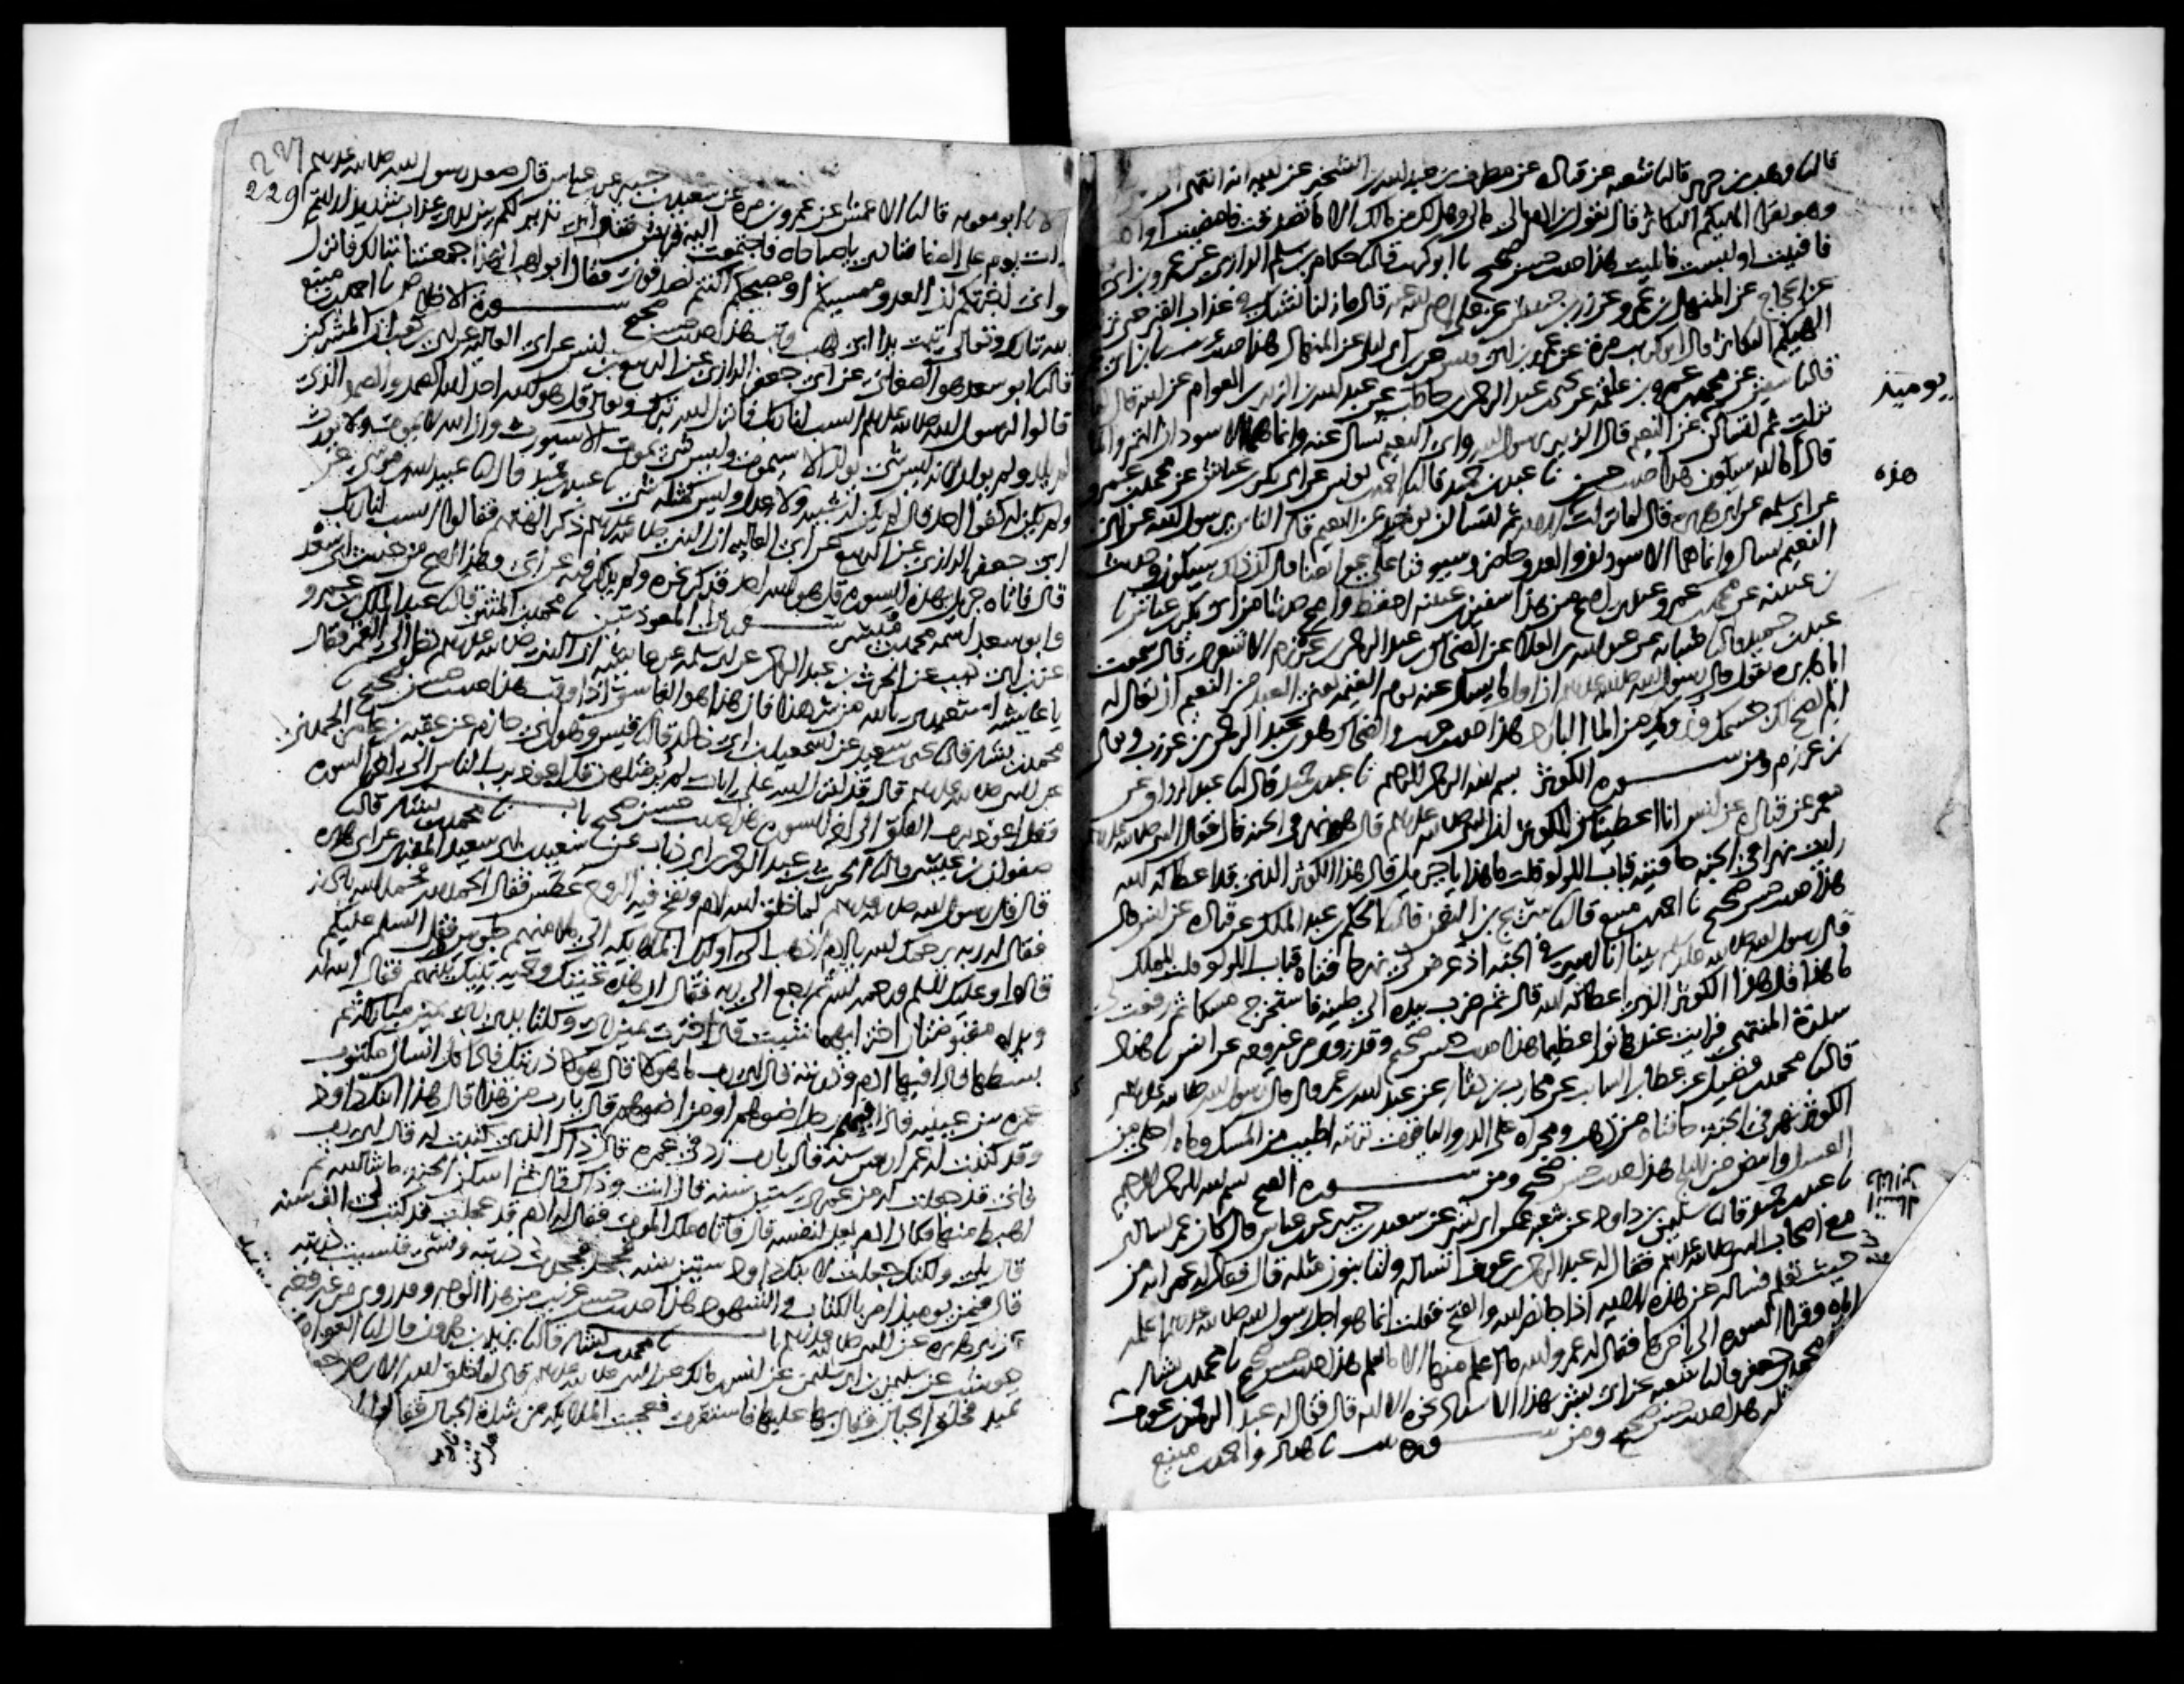 قال نا وهب بن جرير قال نا شعبة عن قتادة عن مطرف بن عبد الله بن الشخير عن ابيه انه انتهى الى
وهو يقرأ الهيكم التكاثر قال يقول ابن ادم مالي مالي وهل لك من مالك الا ما تصدقت فامضيت او اكلت
فافنيت او لبست فابليت هذا حديث حسن صحيح نا ابو كريب قال نا حكام بن سلم الرازي عن عمرو بن ابي
عن الحجاج عن المنهال بن عمرو عن زر بن حبيش عن علي رضي الله عنه قال ما زلنا نشك في عذاب القبر حتى نزلت
الهيكم التكاثر قال ابو كريب مرة عن عمرو بن ابي قيس عن ابن ابي ليلى عن المنهال هذا حديث غريب نا ابن ابي عمر
قال نا سفين عن محمد بن عمرو بن علقمة عن يحيى بن عبد الرحمن بن حاطب عن عبد الله بن الزبير بن العوام عن ابيه قال لما
يومئذ
نزلت ثم لتسألن عن النعيم قال الزبير يا رسول الله واي النعيم نسال عنه وانما هما الاسودان التمر والما
قال اما انه سيكون هذا حديث حسن نا عبد بن حميد قال نا احمد بن يونس عن ابي بكر بن عياش عن محمد بن عمرو
هذه
عن ابي سلمة عن ابي هريرة قال لما نزلت هذه الاية ثم لتسالن يومئذ عن النعيم قال الناس يا رسول الله عن اي
النعيم نسال وانما هما الاسودان والعدو حاضر وسيوفنا على عواتقنا قال ان ذلك سيكون وحديث
بن عيينة عن محمد بن عمرو عندي اصح من هذا سفين بن عيينة احفظ واصح حديثا من ابي بكر بن عياش نا
عبد بن حميد قال نا شبابة عن عبد الله بن العلاء عن الضحاك بن عبد الرحمن بن عرزم الاشعري قال سمعت
ابا هريرة يقول قال رسول الله صلى الله عليه وسلم ان اول ما يسال عنه يوم القيمة يعني العبد من النعيم ان يقال له
الم نصح لك جسمك ونرويك من الماء البارد هذا حديث غريب والضحاك هو بن عبد الرحمن بن عرزب ويقال
بن عرزم ومن سورة الكوثر بسم الله الرحمن الرحيم نا عبد بن حميد قال نا عبد الرزاق عن
معمر عن قتادة عن انس انا اعطيناك الكوثر ان النبي صلى الله عليه وسلم قال هو نهر في الجنة قال فقال النبي صلى الله عليه وسلم
رايت نهرا في الجنة حافتيه قباب اللولو قلت ما هذا يا جبريل قال هذا الكوثر الذي قد اعطاكه الله
هذا حديث حسن صحيح نا احمد بن منيع قال نا سريج بن النعمن قال نا الحكم بن عبد الملك عن قتادة عن انس قال
قال رسول الله صلى الله عليه وسلم بينا انا اسير في الجنة اذ عرض لي نهر حافتاه قباب اللولو قلت للملك
ما هذا قال هذا الكوثر الذي اعطاكه الله قال ثم ضرب بيده الى طينه فاستخرج مسكا ثم رفعت لي
سدرة المنتهى فرايت عندها نورا عظيما هذا حديث حسن صحيح وقد روي من غير وجه عن انس نا هناد
قال نا محمد بن فضيل عن عطاء بن السايب عن محارب بن دثار عن عبد الله بن عمر قال قال رسول الله صلى الله عليه وسلم
الكوثر نهر في الجنة حافتاه من ذهب ومجراه على الدر والياقوت تربته اطيب من المسك وماوه احلى من
العسل وابيض من الثلج هذا حديث حسن صحيح ومن سورة الفتح بسم الله الرحمن الرحيم
نا عبد بن حميد قال نا سليمن بن داود عن شعبة عن ابي بشر عن سعيد بن جبير عن بن عباس قال كان عمر يسالني
مع اصحاب النبي صلى الله عليه وسلم فقال له عبد الرحمن بن عوف اتساله ولنا بنون مثله قال فقال له عمر انه من
حيث تعلم فساله عن هذه الاية اذا جا نصر الله والفتح فقلت انما هو اجل رسول الله صلى الله عليه وسلم اعلمه
اياه وقرا السورة الى اخرها فقال له عمر والله ما اعلم منها الا ما تعلم هذا حديث حسن صحيح نا محمد بن بشار
محمد بن جعفر قال نا شعبة عن ابي بشر بهذا الاسناد نحوه الا انه قال فقال له عبد الرحمن بن عوف
مثله هذا حديث حسن صحيح ومن سورة تبت نا هناد واحمد بن منيع
229
نا ابو معوية قال نا الاعمش عن عمرو بن مرة عن سعيد بن جبير عن بن عباس قال صعد رسول الله صلى الله عليه وسلم
ذات يوم على الصفا فنادى يا صباحاه فاجتمعت اليه قريش فقال اني نذير لكم بين يدي عذاب شديد ارايتم
لو اني اخبرتكم ان العدو ممسيكم او مصبحكم اكنتم تصدقوني فقال ابو لهب الهذا جمعتنا تبا لك فانزل
الله تبارك وتعالى تبت يدا ابي لهب وتب هذا حديث حسن صحيح سورة الاخلاص نا احمد بن منيع
قال نا ابو سعد هو الصغاني عن ابي جعفر الرازي عن الربيع بن انس عن ابي العالية عن ابي بن كعب ان المشركين
قالوا لرسول الله صلى الله عليه وسلم انسب لنا ربك فانزل الله تبارك وتعالى قل هو الله احد الله الصمد والصمد الذي
لم يلد ولم يولد لانه ليس شي يولد الا سيموت وليس شي يموت الا سيورث وان الله لا يموت ولا يورث
ولم يكن له كفوا احد قال لم يكن له شبيه ولا عدل وليس كمثله شي نا عبد بن حميد قال نا عبيد الله بن موسى عن
ابي جعفر الرازي عن الربيع عن ابي العالية ان النبي صلى الله عليه وسلم ذكر الهتهم فقالوا انسب لنا ربك
قال فاتاه جبريل بهذه السورة قل هو الله احد فذكر نحوه ولم يذكر فيه عن ابي وهذا اصح من حديث ابي سعد
وابو سعد اسمه محمد بن ميسر سورة المعوذتين نا محمد بن المثنى قال نا عبد الملك بن عمرو
عن بن ابي ذيب عن الحرث بن عبد الرحمن عن ابي سلمة عن عايشة ان النبي صلى الله عليه وسلم نظر الى القمر فقال
يا عايشة استعيذي بالله من شر هذا فان هذا هو الغاسق اذا وقب هذا حديث حسن صحيح نا
محمد بن بشار قال نا يحيى بن سعيد عن اسمعيل بن ابي خالد قال نا قيس وهو بن ابي حازم عن عقبة بن عامر الجهني
عن النبي صلى الله عليه وسلم قال قد انزل الله علي ايات لم ير مثلهن قل اعوذ برب الناس الى اخر السورة
وقل اعوذ برب الفلق الى اخر السورة هذا حديث حسن صحيح باب نا محمد بن بشار قال نا
صفوان بن عيسى قال نا الحرث بن عبد الرحمن بن ابي ذباب عن سعيد بن ابي سعيد المقبري عن ابي هريرة
قال قال رسول الله صلى الله عليه وسلم لما خلق الله ادم ونفخ فيه الروح عطس فقال الحمد لله فحمد الله باذنه
فقال له ربه يرحمك الله يا ادم اذهب الى اوليك الملايكة الى ملا منهم جلوس فقل السلم عليكم
قالوا وعليك السلم ورحمة الله ثم رجع الى ربه فقال ان هذه تحيتك وتحية بنيك بينهم فقال الله له
ويداه مقبوضتان اختر ايهما شيت قال اخترت يمين ربي وكلتا يدي ربي يمين مباركة ثم
بسطها فاذا فيها ادم وذريته قال اي رب ما هولا قال هولا ذريتك فاذا كل انسان مكتوب
عمره بين عينيه فاذا فيهم رجل اضوهم او من اضوهم قال يا رب من هذا قال هذا ابنك داود
وقد كتبت له عمر اربعين سنة قال يا رب زد في عمره قال ذاك الذي كتبت له قال اي رب
فاني قد جعلت له من عمري ستين سنة قال انت وذاك قال ثم اسكن الجنة ما شا الله ثم
اهبط منها فكان ادم يعد لنفسه قال فاتاه ملك الموت فقال له ادم قد عجلت قد كتب لي الف سنة
قال بلى ولكنك جعلت لابنك داود ستين سنة فجحد فجحدت ذريته ونسي فنسيت ذريته
قال فمن يوميذ امر بالكتاب والشهود هذا حديث حسن غريب من هذا الوجه وقد روي من غير وجه
عن ابي هريرة عن النبي صلى الله عليه وسلم باب نا محمد بن بشار قال نا يزيد بن هرون قال انا العوام بن
حوشب عن سليمن بن ابي سليمن عن انس بن مالك عن النبي صلى الله عليه وسلم قال لما خلق الله الارض جعلت
تميد فخلق الجبال فقال بها عليها فاستقرت فعجبت الملايكة من شدة الجبال فقالوا يا